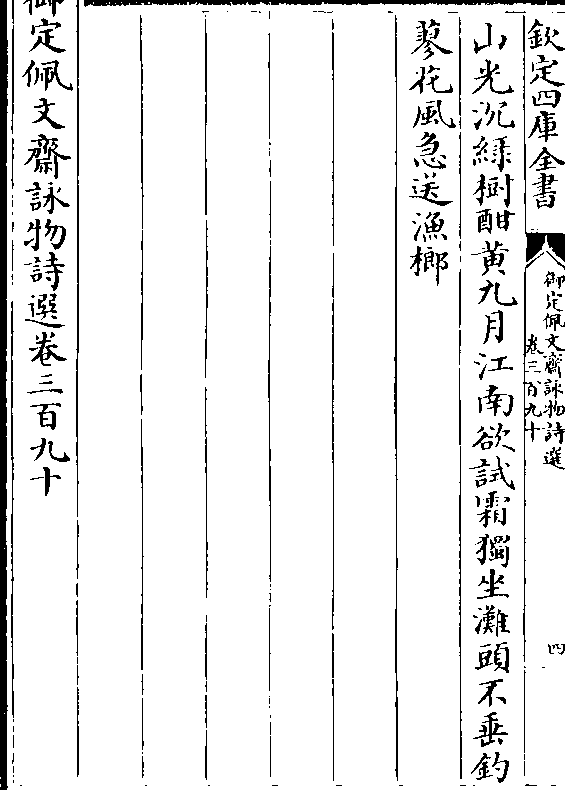 欽定四庫全書
御定佩文齋詠物詩選
卷三百九十
四
山光沉緑樹酣黄九月江南欲試霜獨坐灘頭不垂釣
蓼花風急送漁榔
御定佩文齋詠物詩選卷三百九十